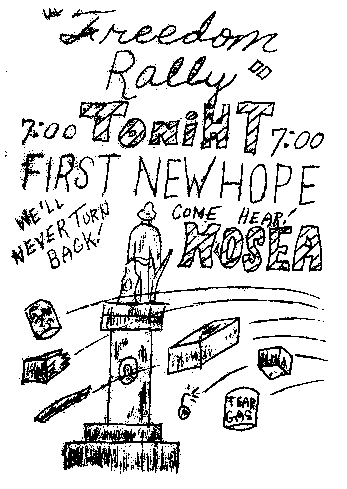 "Freedom
Rally"
7:00 ToniHT 7:00
FIRST NEW HOPE
WE'LL
NEVER TURN
BACK!
COME HEAR!
HOSEA
TEAR
GAS